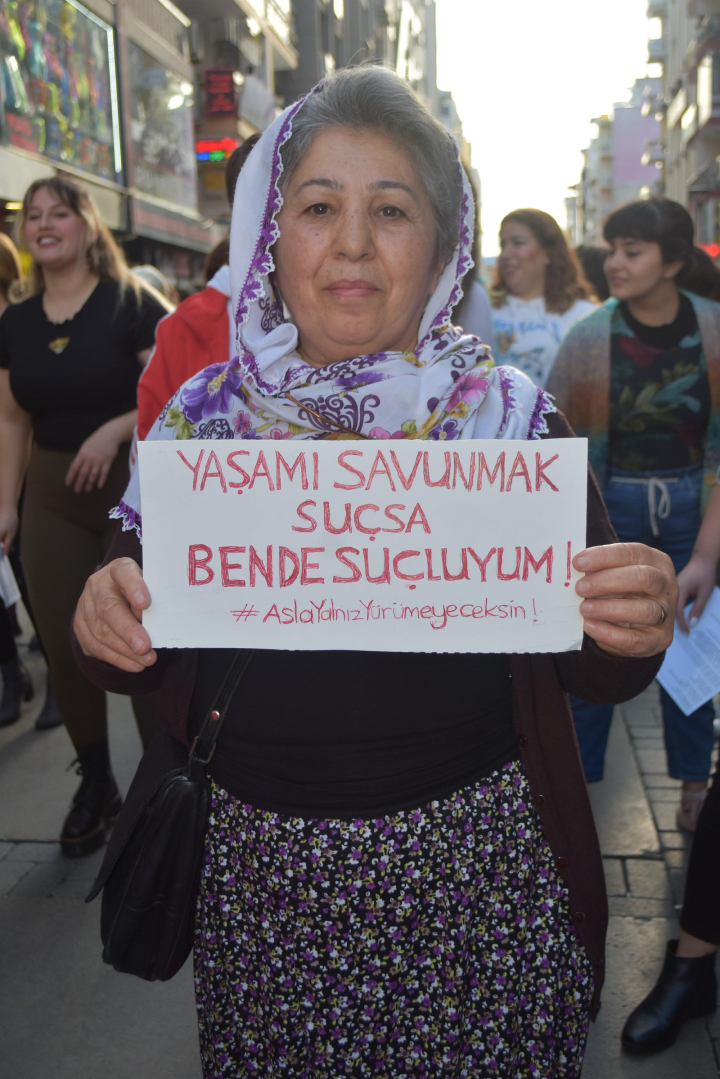 YAŞAMI SAVUNMAK
SUÇSA
BENDE SUÇLUYUM!
#AslaYalnızYürümeyeceksin!